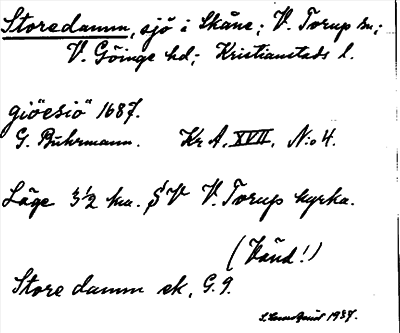 Storedamm, sjö i Skåne; V. Torup sn;
V. Göinge hd; Kristianstads l.
giöesiö" 1687.
G. Buhrmann. Kr A, XVII, N:o 4.
Läge 3 1/2 km. S V V. Torup kyrka.
(Vänd!)
Store damm ek, G. 9.
1937.